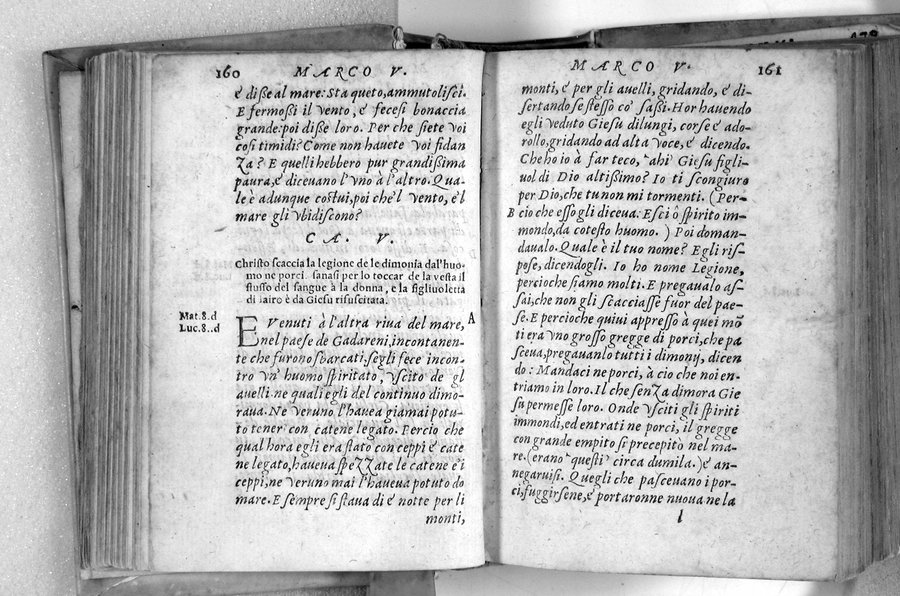 160 MARCO V.
é diße al mare: Sta queto, ammutolisci.
E fermoßi il vento, é fecesi bonaccia
grande: poi diße loro. Per che siete voi
cosi timidi? Come non hauete voi fidan
Za? E quelli hebbero pur grandißima
paura, é diceuano l'vno à l'altro. Qua-
le è adunque costui, poi che'l vento, e'l
mare gli vbidiscono?
CA. V.
Christo scaccia la legione de le dimonia dal'huo-
mo ne porci. sanasi per lo toccar de la vesta il
flusso del sangue à la donna, e la figliuoletta
di Iairo è da Giesu risuscitata.
Mat.8.d
Luc.8..d
A
E Venuti à l'altra riua del mare,
nel paese de Gadareni, incontanen-
te che furono sbarcati, segli fece incon-
tro vn' huomo spiritato, vscito de gl
auelli. ne quali egli del continuo dimo-
raua. Ne veruno l'hauea giamai potu-
to tener con catene legato. Percio che
qual hora egli era stato con ceppi é cate
ne legato, haueua speZZate le catene e'i
ceppi, ne veruno mai l'haueua potuto do
mare. E sempre si staua di é notte per li
monti,
MARCO V. 161
monti, é per gli auelli, gridando, é di-
sertando se steßo co' saßi. Hor hauendo
egli veduto Giesu dilungi, corse é ado-
rollo, gridando ad alta voce, é dicendo.
Che ho io à far teco, ahi Giesu figli-
uol di Dio altißimo? Io ti scongiuro
per Dio, che tu non mi tormenti. (Per-
B cio che eßo gli diceua: Esci ò spirito im-
mondo, da cotesto huomo.) Poi doman-
daualo. Quale è il tuo nome? Egli ris-
pose, dicendogli. Io ho nome Legione,
percioche siamo molti. E pregaualo as-
sai, che non gli scacciaße fuor del pae-
se. E percioche quiui appresso à quei mō
ti era vno grosso gregge di porci, che pa
sceua, pregauanlo tutti i dimonij, dicen
do: Mandaci ne porci, à cio che noi en-
triamo in loro. Il che senZa dimora Gie
su permesse loro. Onde vsciti gli spiriti
immondi, ed entrati ne porci, il gregge
con grande empito si precepitò nel ma-
re. (erano questi circa dumila.) é an-
negaruisi. Quegli che pasceuano i por-
ci, fuggirsene, é portaronne nuoua ne la
l